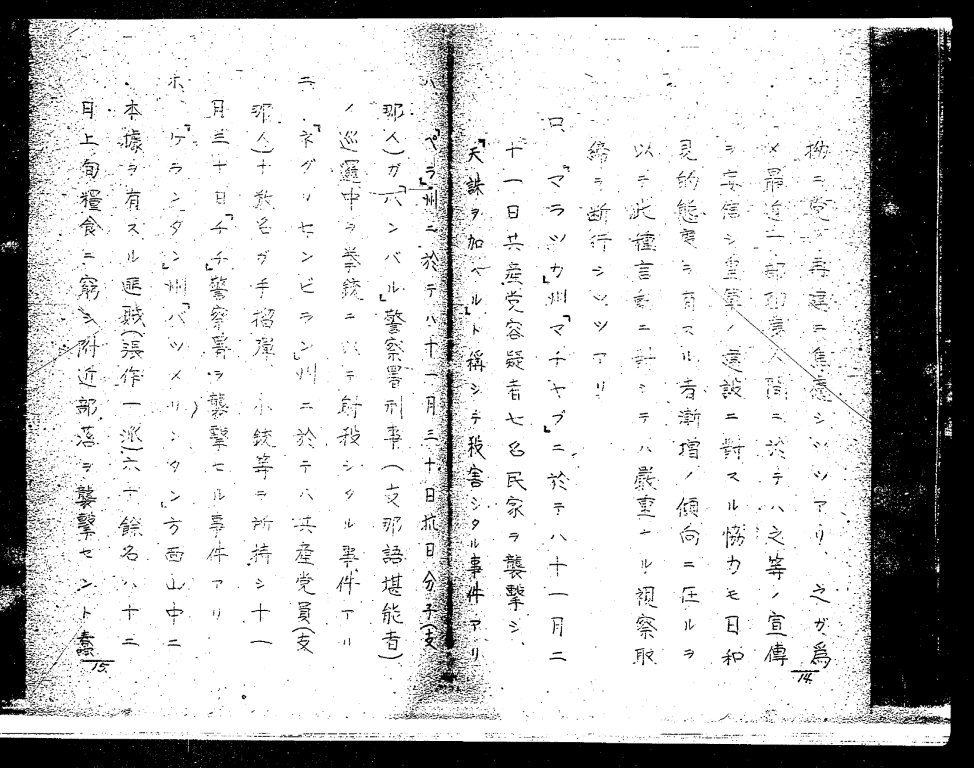 拗ニ党ノ再建ニ焦慮シツツアリ、之ガ為
メ最近一部印度人間ニ於テハ之等ノ宣傳
ヲ妄信シ重軍ノ建設ニ對スル協力モ日和
見的態度ヲ有スル者漸増ノ傾向ニ在ルヲ
以テ此種言動ニ對シテハ嚴重ナル視察取
締ヲ断行シツツアリ
ロ、「マラツカ」州「マチヤプ」ニ於テハ十一月二
十一日共産党容疑者七名民家ヲ襲撃シ、
「天誅ヲ加ベル」ト稱シテ殺害シタル事件アリ
14.
ハ、「ペラ」州ニ於テハ十一月三十日抗日分子(支
那人)ガ「バンバル」警察署刑事(支那語堪能者)
ノ巡邏中ヲ拳銃ニ以テ射殺シタル事件アリ
ニ、「ネグリセンビラン」州ニ於テハ共産党員(支
那人)十数名ガ手榴弾、小銃等ヲ所持シ十一
月三十日「チチ」警察署ヲ襲撃セル事件アリ
ホ、「ケランタン」州「バツメリンタン」方面山中ニ
本據ヲ有スル匪賊(張作一派)六十餘名ハ十二
月上旬糧食ニ窮シ附近部落ヲ襲撃セント
15.